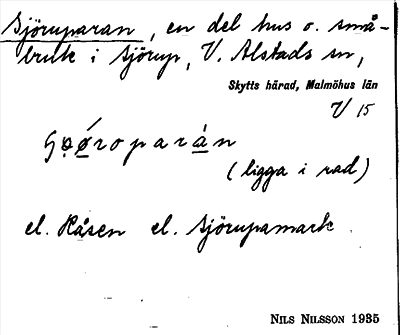 Sjöruparan, en del hus o. små-
bruk i Sjörup, V. Alstads sn,
Skytts härad, Malmöhus län
V 15
(ligga i rad)
el. Råsen el. Sjörupamark
NILS NILSSON 1935